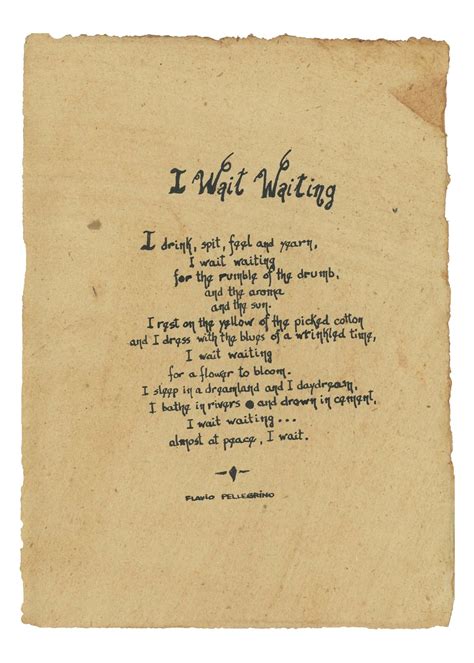 I Wait Waiting
I drink, spit, feel and yearn,
I wait waiting
for the rumble of the drumb,
and the aroma
and the sun.
I rest on the yellow of the picked cotton
and I dress with the blues of a wrinkled time,
I wait waiting
for a flower to bloom.
I sleep in a dreamland and I daydream,
I bathe in rivers and drown in cement,
I wait waiting...
almost at peace, I wait.
FLAVIO PELLEGRINO